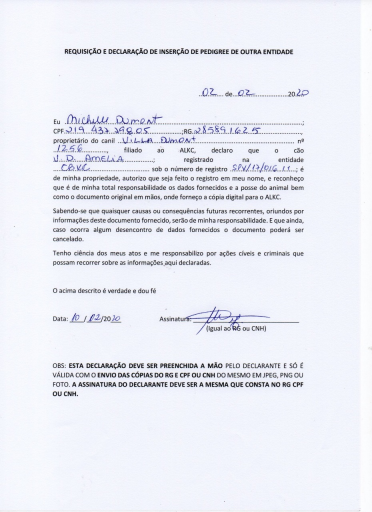 REQUISIÇÃO E DECLARAÇÃO DE INSERÇÃO DE PEDIGREE DE OUTRA ENTIDADE
02 de 02 2020
Eu Michelle Dumont
CPF RG
proprietário do canil VILLA DUMONT nº
1256, filiado ao ALKC, declaro que o cão
V.D. AMELIA; registrado na entidade
sob o número de registro é
de minha propriedade, autorizo que seja feito o registro em meu nome, e reconheço
que é de minha total responsabilidade os dados fornecidos e a posse do animal bem
como o documento original em mãos, onde forneço a cópia digital para o ALKC.
Sabendo-se que quaisquer causas ou consequências futuras recorrentes, oriundos por
informações deste documento fornecido, serão de minha responsabilidade. E que ainda,
caso ocorra algum desencontro de dados fornecidos o documento poderá ser
cancelado.
Tenho ciência dos meus atos e me responsabilizo por ações cíveis e criminais que
possam recorrer sobre as informações aqui declaradas.
O acima descrito é verdade e dou fé
Data: 10 / 02/2020 Assinatura:
(Igual ao RG ou CNH)
OBS: ESTA DECLARAÇÃO DEVE SER PREENCHIDA A MÃO PELO DECLARANTE E SÓ É
VÁLIDA COM O ENVIO DAS CÓPIAS DO RG E CPF OU CNH DO MESMO EM JPEG, PNG OU
FOTO. A ASSINATURA DO DECLARANTE DEVE SER A MESMA QUE CONSTA NO RG CPF
OU CNH.